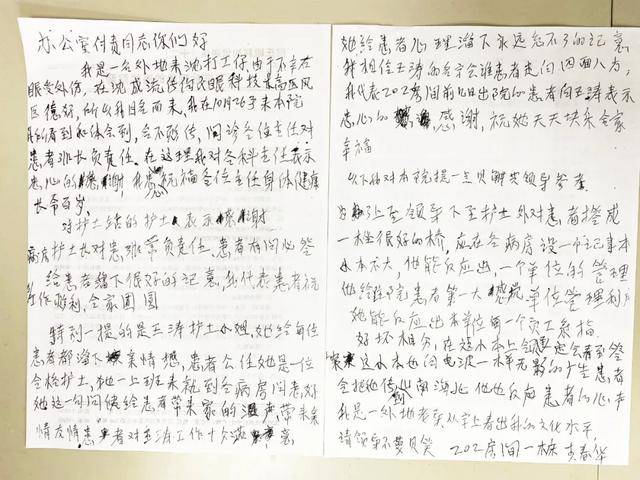 办公室付责同志你们好
我是一名外地来沈打工仔由于不幸在
眼受外伤，在沈成流传何氏眼科技术高医风
医德好，所以我目名而来，我在10月26号来本院
我所看到和体会到，会不够传，门诊各位主任对
患者非长负责任。在这理我对各科主任表示
忠心的感谢，我忠心祝福各位主任身体健康
长命百岁。
对护士站的护士人表示感谢
病房护士长对患非常负责任、患者有问必答
给患者留下很好的记意，我代表患者祝
工作顺利，全家团圆
特别一提的是王涛护士小姐，她给每位
患者都溜下亲情感，患者公任她是一位
合格护士，她一上班来就到各病房问老好
她这一句问候给患者带来家的温声，带来亲
情友情患者对王涛工作十分满意
她给患者心理溜下永远忘不了的记意
我相信王涛的名字会谁患者走向四面八方，
我代表202房间前几日出院的患者向王涛表示
忠心的感谢，祝她天天快乐全家
幸福
以下我对本院提一点贝解共领导参考
为了上至领导下至护士外对患者搭成
一座很好的桥，应在各病房设一个记事本
小本不大，他能反应出，一个单位的管理
他给住院患者第一大感觉单位管理利
她能反应出本单位每一个员工
好坏相分，在这小本上会
这小本他的电波一样无影的广告患者
会把他传湖南湖北他也反应患者的心声
我是一外地老实从字上看出我的文化水平，
请领导不要见笑 202房间一床 春华